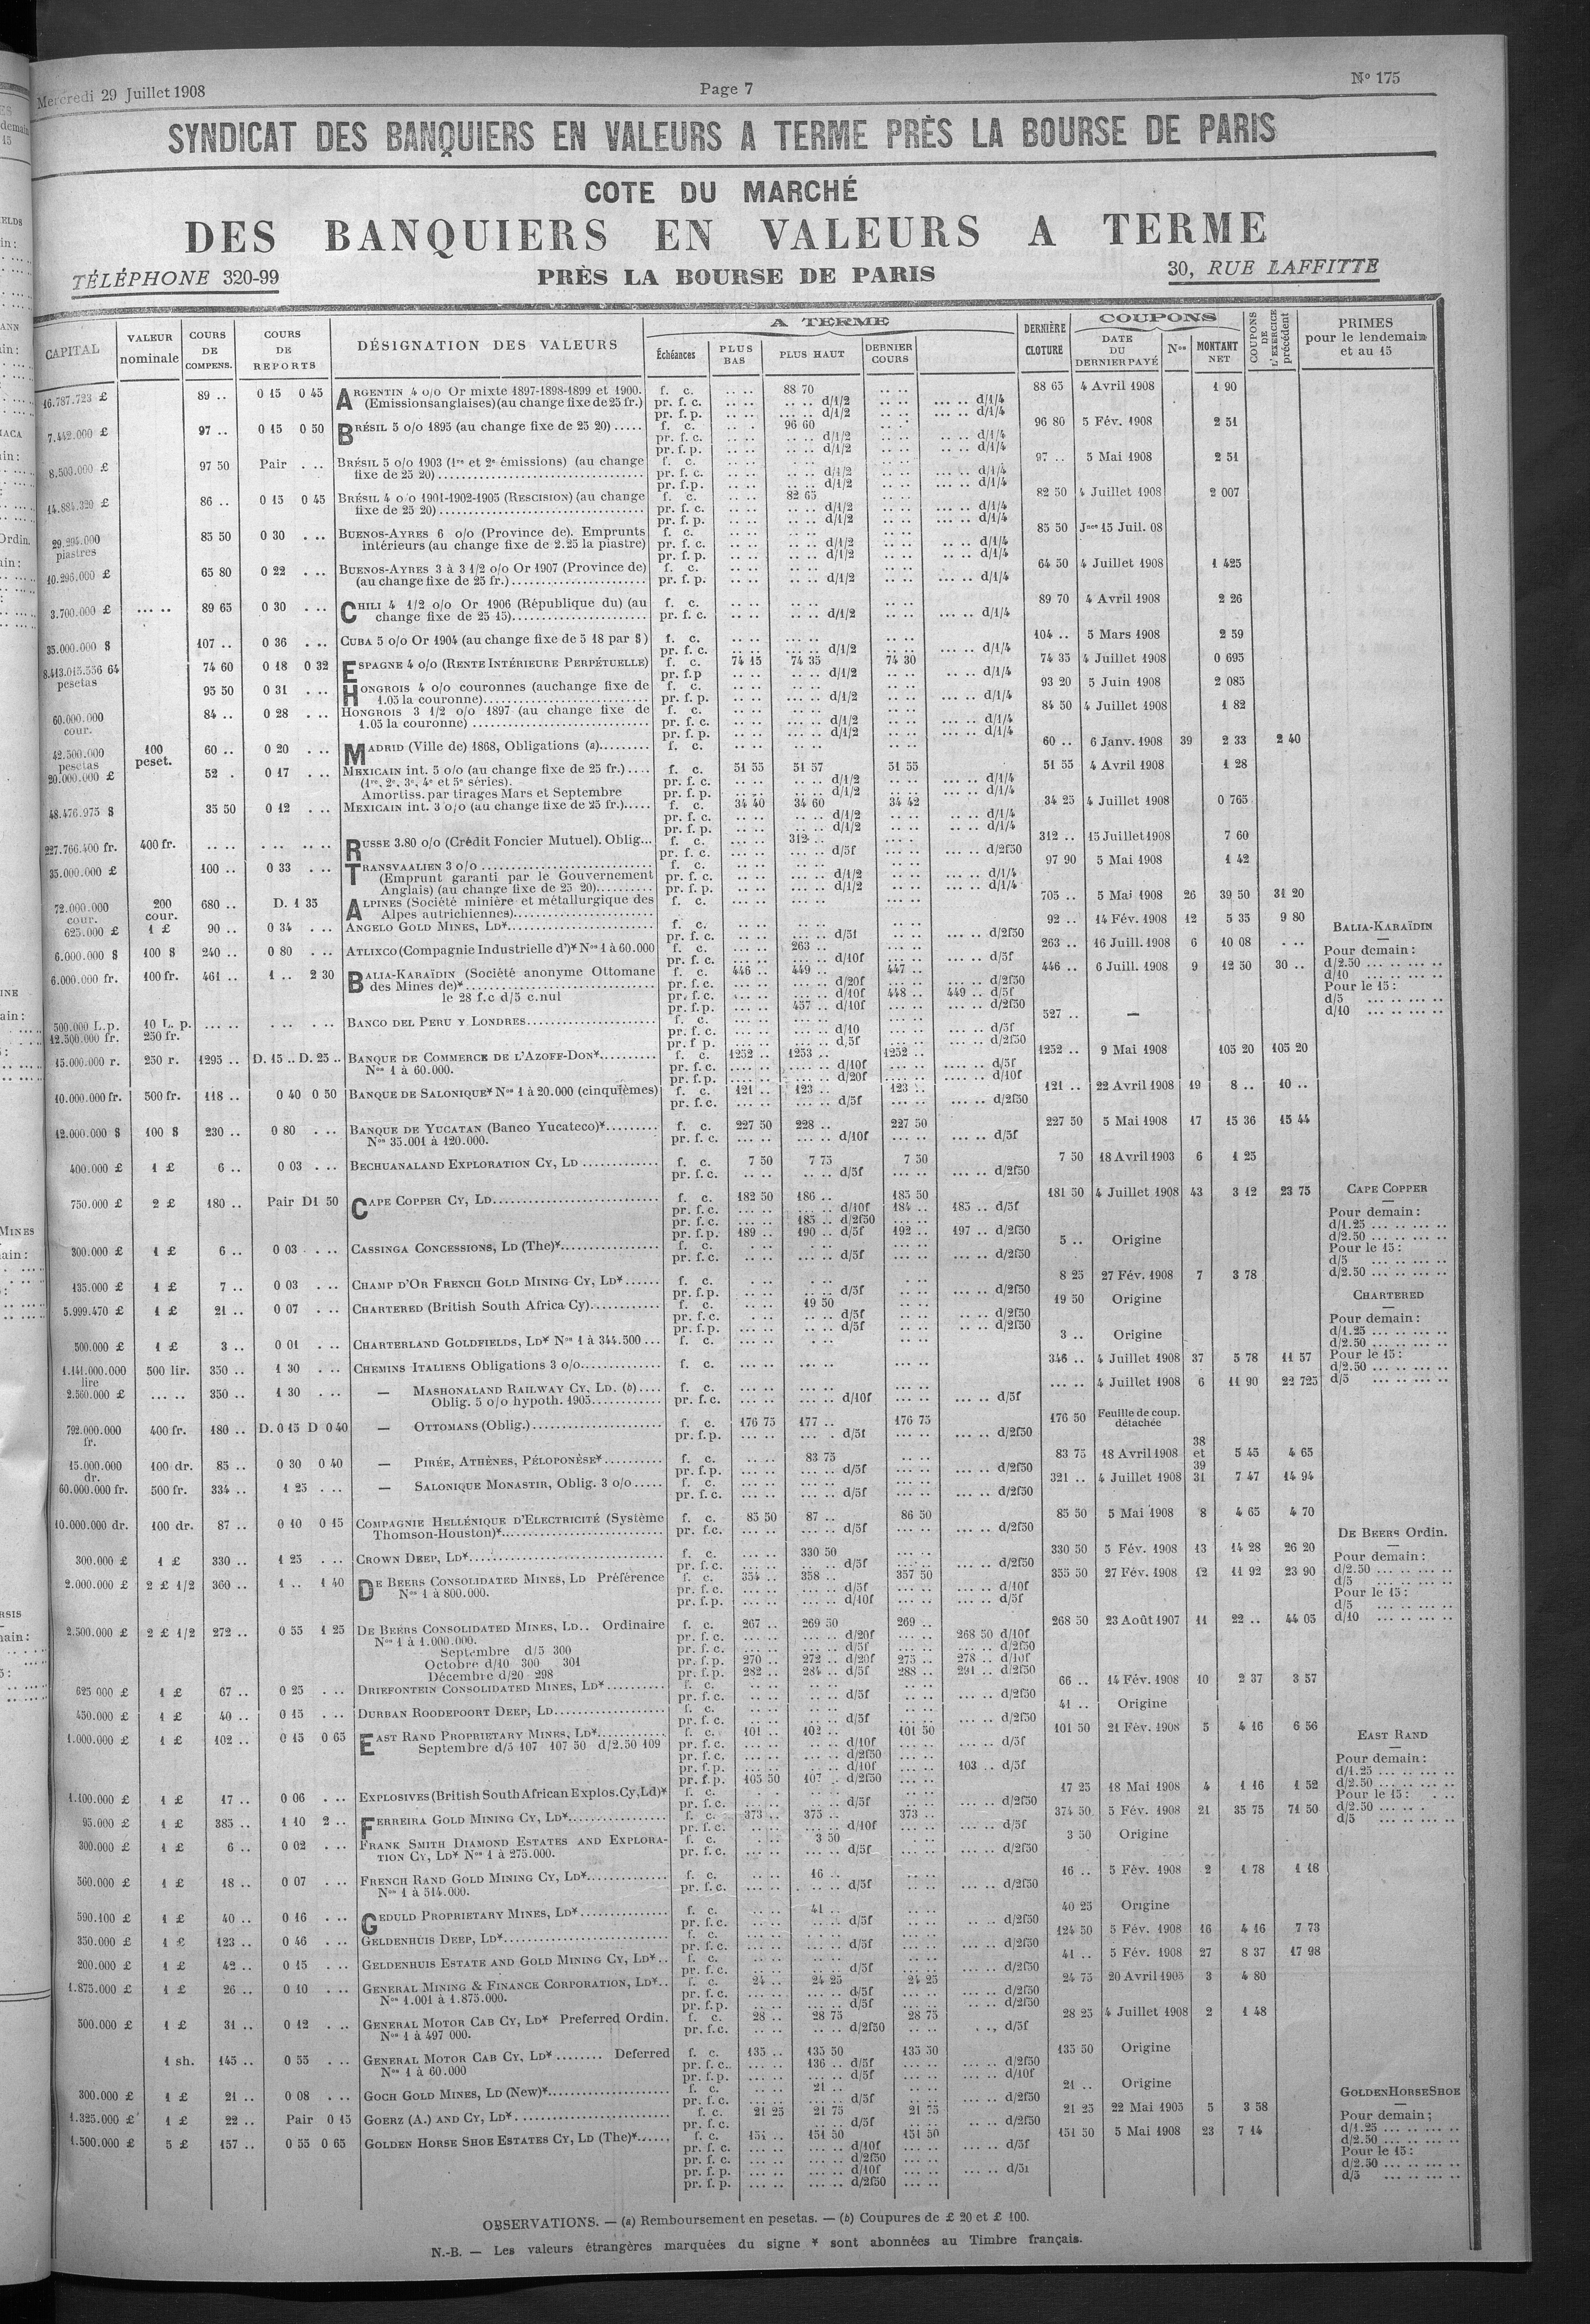 Mercredi 29 Juillet 1908 Page 7 N° 175
SYNDICAT DES BANQUIERS EN VALEURS A TERME PRÈS LA BOURSE DE PARIS
COTE DU MARCHÉ
DES BANQUIERS EN VALEURS A TERME
TÉLÉPHONE 320-99 PRÈS LA BOURSE DE PARIS 30, RUE LAFFITTE
CAPITAL VALEUR nominale COURS DE COMPENS. COURS DE REPORTS DÉSIGNATION DES VALEURS A TERME Échéances PLUS BAS PLUS HAUT DERNIER COURS DERNIÈRE CLOTURE COUPONS DATE DU DERNIER PAYÉ Nos MONTANT NET COUPONS DE L'EXERCICE précédent PRIMES pour le lendemain et au 15
16.787.723 £ 89 .. 0 15 0 45 ARGENTIN 4 o/o Or mixte 1897-1898-1899 et 1900. f. c. .. .. 88 70 .. .. 88 65 4 Avril 1908 1 90
(Emissions anglaises) (au change fixe de 25 fr.) pr. f. c. d/1/2 d/1/4
pr. f. p. d/1/2 d/1/4
7.442.000 £ 97 .. 0 15 0 50 BRÉSIL 5 o/o 1895 (au change fixe de 25 20) ..... f. c. 96 60 96 80 5 Fév. 1908 2 51
pr. f. c. d/1/2 d/1/4
pr. f. p. d/1/2 d/1/4
8.500.000 £ 97 50 Pair . .. BRÉSIL 5 o/o 1903 (1re et 2e émissions) (au change f. c. 97 .. 5 Mai 1908 2 51
fixe de 25 20) pr. f. c. d/1/2 d/1/4
pr. f.p. d/1/2 d/1/4
14.884.320 £ 86 .. 0 15 0 45 BRÉSIL 4 o/o 1901-1902-1905 (RESCISION) (au change f. c. 82 65 82 50 4 Juillet 1908 2 007
fixe de 25 20) pr. f. c. d/1/2 d/1/4
pr. f. p. d/1/2 d/1/4
29.294.000 piastres 85 50 0 30 . .. BUENOS-AYRES 6 o/o (Province de). Emprunts f. c. 85 50 Jnce 15 Juil. 08
intérieurs (au change fixe de 2.25 la piastre) pr. f. c. d/1/2 d/1/4
pr. f. p. d/1/2 d/1/4
10.296.000 £ 65 80 0 22 . .. BUENOS-AYRES 3 à 3 1/2 o/o Or 1907 (Province de) f. c. 64 50 4 Juillet 1908 1 425
(au change fixe de 25 fr.) pr. f. p. d/1/2 d/1/4
3.700.000 £ ... .. 89 65 0 30 . .. CHILI 4 1/2 o/o Or 1906 (République du) (au f. c. 89 70 4 Avril 1908 2 26
change fixe de 25 15) pr. f. c. d/1/2 d/1/4
35.000.000 $ 107 .. 0 36 . .. CUBA 5 o/o Or 1904 (au change fixe de 5 18 par $) f. c. 104 .. 5 Mars 1908 2 59
pr. f. c. d/1/2 d/1/4
8.413.015.556 64 pesetas 74 60 0 18 0 32 ESPAGNE 4 o/o (RENTE INTÉRIEURE PERPÉTUELLE) f. c. 74 15 74 35 74 30 74 35 4 Juillet 1908 0 695
pr. f.p d/1/2 d/1/4
95 50 0 31 . .. HONGROIS 4 o/o couronnes (au change fixe de f. c. 93 20 5 Juin 1908 2 085
1.05 la couronne) pr. f. p. d/1/2 d/1/4
60.000.000 cour. 84 .. 0 28 . .. HONGROIS 3 1/2 o/o 1897 (au change fixe de f. c. 84 50 4 Juillet 1908 1 82
1.05 la couronne) pr. f. c. d/1/2 d/1/4
pr. f. p. d/1/2 d/1/4
42.500.000 pesetas 100 peset. 60 .. 0 20 . .. MADRID (Ville de) 1868, Obligations (a) f. c. 60 .. 6 Janv. 1908 39 2 33 2 40
20.000.000 £ 52 . 0 17 . .. MEXICAIN int. 5 o/o (au change fixe de 25 fr.) .... f. c. 51 55 51 57 51 55 51 55 4 Avril 1908 1 28
(1re, 2e, 3e, 4e et 5e séries). pr. f. c. d/1/2 d/1/4
Amortiss. par tirages Mars et Septembre pr. f. p. d/1/2 d/1/4
48.476.975 $ 35 50 0 12 . .. MEXICAIN int. 3 o/o (au change fixe de 25 fr.) f. c. 34 40 34 60 34 42 34 25 4 Juillet 1908 0 765
pr. f. c. d/1/2 d/1/4
pr. f. p. d/1/2 d/1/4
227.766.400 fr. 400 fr. RUSSE 3.80 o/o (Crédit Foncier Mutuel). Oblig... f. c. 312 312 .. 15 Juillet 1908 7 60
pr. f. c. d/5f d/2f50
35.000.000 £ 100 .. 0 33 . .. TRANSVAALIEN 3 o/o f. c. 97 90 5 Mai 1908 1 42
(Emprunt garanti par le Gouvernement pr. f. c. d/1/2 d/1/4
Anglais) (au change fixe de 25 20) pr. f. p. d/1/2 d/1/4
72.000.000 cour. 200 cour. 680 .. D. 1 35 ALPINES (Société minière et métallurgique des f. c. 705 .. 5 Mai 1908 26 39 50 31 20
Alpes autrichiennes)
625.000 £ 1 £ 90 .. 0 34 . .. ANGELO GOLD MINES, LD* f. c. 92 .. 14 Fév. 1908 12 5 35 9 80
pr. f. c. d/5f d/2f50
6.000.000 $ 100 $ 240 .. 0 80 . .. ATLIXCO (Compagnie Industrielle d')* Nos 1 à 60.000 f. c. 263 .. 263 .. 16 Juill. 1908 6 10 08 . ..
pr. f. c. d/10f d/5f
6.000.000 fr. 100 fr. 461 .. 1 .. 2 30 BALIA-KARAÏDIN (Société anonyme Ottomane f. c. 446 .. 449 .. 447 .. 446 .. 6 Juill. 1908 9 12 50 30 ..
des Mines de)* pr. f. c. d/20f d/2f50
le 28 f.c d/5 c.nul pr. f. c. d/10f 448 .. 449 .. d/5f
pr. f. p. 457 .. d/10f d/2f50
BALIA-KARAÏDIN
Pour demain :
d/2.50
d/10
Pour le 15 :
d/5
d/10
500.000 L.p. 12.500.000 fr. 10 L. p. 250 fr. BANCO DEL PERU Y LONDRES f. c. 527 .. —
pr. f. c. d/10 d/5f
pr. f p. d,5f d/2f50
15.000.000 r. 250 r. 1295 .. D. 15 .. D. 25 .. BANQUE DE COMMERCE DE L'AZOFF-DON* f. c. 1252 .. 1253 .. 1252 .. 1252 .. 9 Mai 1908 105 20 105 20
Nos 1 à 60.000. pr. f. c. d/10f d/5f
pr. f. p. d/20f d/10f
10.000.000 fr. 500 fr. 118 .. 0 40 0 50 BANQUE DE SALONIQUE* Nos 1 à 20.000 (cinquièmes) f. c. 121 .. 123 .. 123 .. 121 .. 22 Avril 1908 19 8 .. 10 ..
pr. f. c. d/5f d/2f50
12.000.000 $ 100 $ 230 .. 0 80 . .. BANQUE DE YUCATAN (Banco Yucateco)* f. c. 227 50 228 .. 227 50 227 50 5 Mai 1908 17 15 36 15 44
Nos 35.001 à 120.000. pr. f. c. d/10f d/5f
400.000 £ 1 £ 6 .. 0 03 . .. BECHUANALAND EXPLORATION CY, LD f. c. 7 50 7 75 7 50 7 50 18 Avril 1903 6 1 25
pr. f. c. d/5f d/2f50
750.000 £ 2 £ 180 .. Pair D1 50 CAPE COPPER CY, LD f. c. 182 50 186 .. 185 50 181 50 4 Juillet 1908 43 3 12 23 75
pr. f. c. d/10f 184 .. 185 .. d/5f
pr. f. c. 185 .. d/2f50
pr. f.p. 189 .. 190 .. d/5f 192 .. 197 .. d/2f50
CAPE COPPER
Pour demain :
d/1.25
d/2.50
Pour le 15 :
d/5
d/2.50
300.000 £ 1 £ 6 .. 0 03 . .. CASSINGA CONCESSIONS, LD (The)* f. c. 5 .. Origine
pr. f. c. d/5f d/2f50
135.000 £ 1 £ 7 .. 0 03 . .. CHAMP D'OR FRENCH GOLD MINING CY, LD* f. c. 8 25 27 Fév. 1908 7 3 78
pr. f. p. d/5f d/2f50
5.999.470 £ 1 £ 21 .. 0 07 . .. CHARTERED (British South Africa Cy) f. c. 19 50 19 50 Origine
pr. f. c. d/5f d/2f50
pr. f. p. d/5f d/2f50
CHARTERED
Pour demain :
d/1.25
d/2.50
Pour le 15 :
d/2.50
d/5
500.000 £ 1 £ 3 .. 0 01 . .. CHARTERLAND GOLDFIELDS, LD* Nos 1 à 344.500 ... f. c. 3 .. Origine
1.141.000.000 lire 500 lir. 350 .. 1 30 . .. CHEMINS ITALIENS Obligations 3 o/o f. c. 346 .. 4 Juillet 1908 37 5 78 11 57
2.560.000 £ ... .. 350 .. 1 30 . .. — MASHONALAND RAILWAY CY, LD. (b) .... f. c. 4 Juillet 1908 6 11 90 22 725
Oblig. 5 o/o hypoth. 1905 pr. f. c. d/10f d/5f
792.000.000 fr. 400 fr. 180 .. D. 0 15 D 0 40 — OTTOMANS (Oblig.) f. c. 176 75 177 .. 176 75 176 50 Feuille de coup. détachée
pr. f. p. d/5f d/2f50
15.000.000 dr. 100 dr. 85 .. 0 30 0 40 — PIRÉE, ATHÈNES, PÉLOPONÈSE* f. c. 83 75 83 75 18 Avril 1908 38 et 39 5 45 4 65
pr. f. p. d/5f d/2f50
60.000.000 fr. 500 fr. 334 .. 1 25 . .. — SALONIQUE MONASTIR, Oblig. 3 o/o f. c. 321 .. 4 Juillet 1908 31 7 47 14 94
pr. f. c. d/5f d/2f50
10.000.000 dr. 100 dr. 87 .. 0 10 0 15 COMPAGNIE HELLÉNIQUE D'ELECTRICITÉ (Système f. c. 85 50 87 .. 86 50 85 50 5 Mai 1908 8 4 65 4 70
Thomson-Houston)* pr. f.c. d/5f d/2f50
300.000 £ 1 £ 330 .. 1 25 . .. CROWN DEEP, LD* f. c. 330 50 330 50 5 Fév. 1908 13 14 28 26 20
pr. f. c. d/5f d/2f50
2.000.000 £ 2 £ 1/2 360 .. 1 .. 1 40 DE BEERS CONSOLIDATED MINES, LD Préférence f. c. 354 .. 358 .. 357 50 355 50 27 Fév. 1908 12 11 92 23 90
Nos 1 à 800.000. pr. f. c. d/5f d/10f
pr. f. p. d/10f d/5f
DE BEERS Ordin.
Pour demain :
d/2.50
d/5
Pour le 15 :
d/5
d/10
2.500.000 £ 2 £ 1/2 272 .. 0 55 1 25 DE BEERS CONSOLIDATED MINES, LD.. Ordinaire f. c. 267 .. 269 50 269 .. 268 50 23 Août 1907 11 22 .. 44 05
Nos 1 à 1.000.000. pr. f. c. d/20f 268 50 d/10f
Septembre d/5 300 pr. f. c. d/5f d/2f50
Octobre d/10 300 301 pr. f. p. 270 .. 272 .. d/20f 275 .. 278 .. d/10f
Décembre d/20 298 pr. f. p. 282 .. 284 .. d/5f 288 .. 291 .. d/2f50
625 000 £ 1 £ 67 .. 0 25 . .. DRIEFONTEIN CONSOLIDATED MINES, LD* f. c. 66 .. 14 Fév. 1908 10 2 37 3 57
pr. f. c. d/5f d/2f50
450.000 £ 1 £ 40 .. 0 15 . .. DURBAN ROODEPOORT DEEP, LD f. c. 41 .. Origine
pr. f. c. d/5f d/2f50
1.000.000 £ 1 £ 102 .. 0 15 0 65 EAST RAND PROPRIETARY MINES, LD* f. c. 101 .. 102 .. 101 50 101 50 21 Fév. 1908 5 4 16 6 56
Septembre d/5 107 107 50 d/2.50 109 pr. f. c. d/10f d/5f
pr. f. c. d/2f50
pr. f. p. d/10f 103 .. d/5f
pr. f. p. 105 50 107 .. d/2f50
EAST RAND
Pour demain :
d/1.25
d/2.50
Pour le 15 :
d/2.50
d/5
1.100.000 £ 1 £ 17 .. 0 06 . .. EXPLOSIVES (British South African Explos. Cy, Ld)* f. c. 17 25 18 Mai 1908 4 1 16 1 52
pr. f. c. d/5f d/2f50
95.000 £ 1 £ 385 .. 1 10 2 .. FERREIRA GOLD MINING CY, LD* f. c. 373 .. 375 .. 373 .. 374 50 5 Fév. 1908 21 35 75 71 50
pr. f. c. d/10f d/5f
300.000 £ 1 £ 6 .. 0 02 . .. FRANK SMITH DIAMOND ESTATES AND EXPLORA- f. c. 3 50 3 50 Origine
TION CY, LD* Nos 1 à 275.000. pr. f. c. d/5f d/2f50
560.000 £ 1 £ 18 .. 0 07 . .. FRENCH RAND GOLD MINING CY, LD* f. c. 16 .. 16 .. 5 Fév. 1908 2 1 78 1 18
Nos 1 à 514.000. pr. f. c. d/5f d/2f50
590.100 £ 1 £ 40 .. 0 16 . .. GEDULD PROPRIETARY MINES, LD* f. c. 41 .. 40 25 Origine
pr. f. c. d/5f d/2f50
350.000 £ 1 £ 123 .. 0 46 . .. GELDENHUIS DEEP, LD* f. c. 124 50 5 Fév. 1908 16 4 16 7 73
pr. f. c. d/5f d/2f50
200.000 £ 1 £ 42 .. 0 15 . .. GELDENHUIS ESTATE AND GOLD MINING CY, LD* f. c. 41 .. 5 Fév. 1908 27 8 37 17 98
pr. f. c. d/5f d/2f50
1.875.000 £ 1 £ 26 .. 0 10 . .. GENERAL MINING & FINANCE CORPORATION, LD* f. c. 24 .. 24 25 24 25 24 75 20 Avril 1905 3 4 80
Nos 1.001 à 1.875.000. pr. f. c. d/5f d/2f50
pr. f. p. d/5f d/2f50
500.000 £ 1 £ 31 .. 0 12 . .. GENERAL MOTOR CAB CY, LD* Preferred Ordin. f. c. 28 .. 28 75 28 75 28 25 4 Juillet 1908 2 1 48
Nos 1 à 497 000. pr. f.c. d/2f50 d/5f
1 sh. 145 .. 0 55 . .. GENERAL MOTOR CAB CY, LD* ........ Deferred f. c. 135 .. 135 50 135 50 135 50 Origine
Nos 1 à 60.000 pr. f. c. 136 .. d/5f d/2f50
pr. f. p. d/5f d/10f
300.000 £ 1 £ 21 .. 0 08 . .. GOCH GOLD MINES, LD (New)* f. c. 21 .. 21 .. Origine
pr. f. c. d/5f d/2f50
1.325.000 £ 1 £ 22 .. Pair 0 15 GOERZ (A.) AND CY, LD* f. c. 21 25 21 75 21 75 21 25 22 Mai 1905 5 3 58
pr. f. c. d/5f d/2f50
1.500.000 £ 5 £ 157 .. 0 55 0 65 GOLDEN HORSE SHOE ESTATES CY, LD (The)* f. c. 151 .. 151 50 151 50 151 50 5 Mai 1908 23 7 14
pr. f. c. d/10f d/5f
pr. f. c. d/2f50
pr. f. p. d/10f d/5f
pr. f. p. d/2f50
GOLDEN HORSE SHOE
Pour demain ;
d/1.25
d/2.50
Pour le 15 :
d/2.50
d/5
OBSERVATIONS. — (a) Remboursement en pesetas. — (b) Coupures de £ 20 et £ 100.
N.-B. — Les valeurs étrangères marquées du signe * sont abonnées au Timbre français.